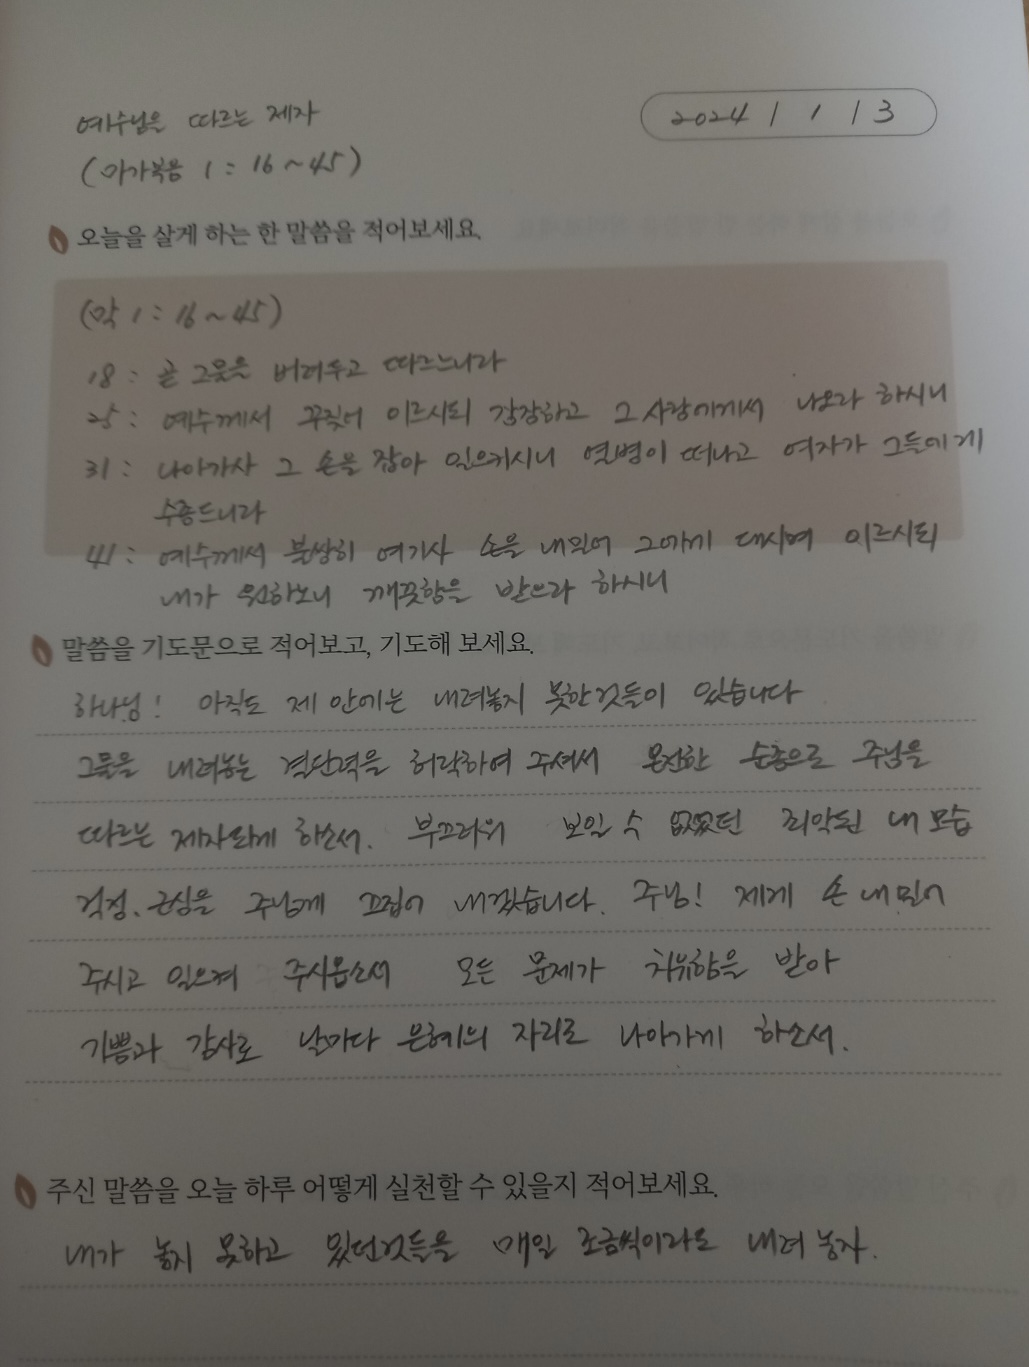 예수님을 따르는 제자
2024 | 1 | 3
(마가복음 1 : 16 ~ 45)
오늘을 살게 하는 한 말씀을 적어보세요.
(막 1 : 16 ~ 45)
18 : 곧 그물을 버려두고 따르느니라
25 : 예수께서 꾸짖어 이르시되 잠잠하고 그 사람에게서 나오라 하시니
31 : 나아가사 그 손을 잡아 일으키시니 열병이 떠나고 여자가 그들에게
수종드니라
41 : 예수께서 불쌍히 여기사 손을 내밀어 그에게 대시며 이르시되
내가 원하노니 깨끗함을 받으라 하시니
말씀을 기도문으로 적어보고, 기도해 보세요.
하나님! 아직도 제 안에는 내려놓지 못한것들이 있습니다
그물을 내려놓는 결단력을 허락하여 주셔서 온전한 순종으로 주님을
따르는 제자되게 하소서. 부끄러워 보일 수 없었던 죄악된 내 모습
걱정. 근심을 주님께 끄집어 내겠습니다. 주님! 제게 손 내밀어
주시고 일으켜 주시옵소서 모든 문제가 치유함을 받아
기쁨과 감사로 날마다 은혜의 자리로 나아가게 하소서.
주신 말씀을 오늘 하루 어떻게 실천할 수 있을지 적어보세요.
내가 놓지 못하고 있던것들을 매일 조금씩이라도 내려 놓자.